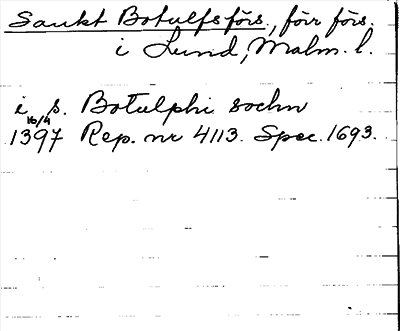 Sankt Botulfs förs., förr förs.
i Lund, Malm. l.
i S. Botulphi sochn
16/4 1397 Rep. nr 4113. Spec. 1693.